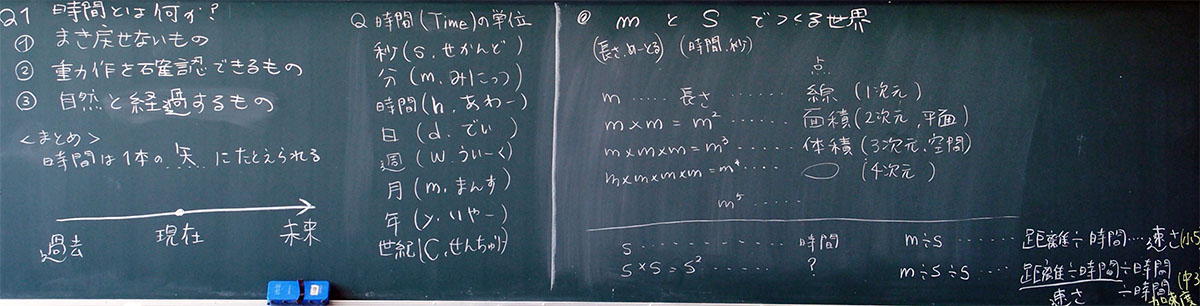 Q1 時間とは何か?
① まき戻せないもの
② 重力作を確認できるもの
③ 自然と経過するもの
<まとめ>
時間は1本の矢にたとえられる
過去 現在 未来
Q 時間(Time)の単位
秒(s. せかんど)
分(m. みにっつ)
時間(h. あわー)
日(d. でい)
週(w. ういーく)
月(m. まんす)
年(y. いやー)
世紀(C. せんちゅり)
m と S でつくる世界
(長さ.めーとる) (時間.秒)
点
m ..... 長さ ...... 線 (1次元)
m×m = m² ...... 面積(2次元.平面)
m×m×m = m³ ...... 体積(3次元.空間)
m×m×m×m = m⁴ ...... (4次元)
m⁵ .....
s ............ 時間
s×s = s² ...... ?
m÷s ...... 距離÷時間 ... 速さ(小5
m÷s÷s .... 距離÷時間÷時間
速さ ÷時間